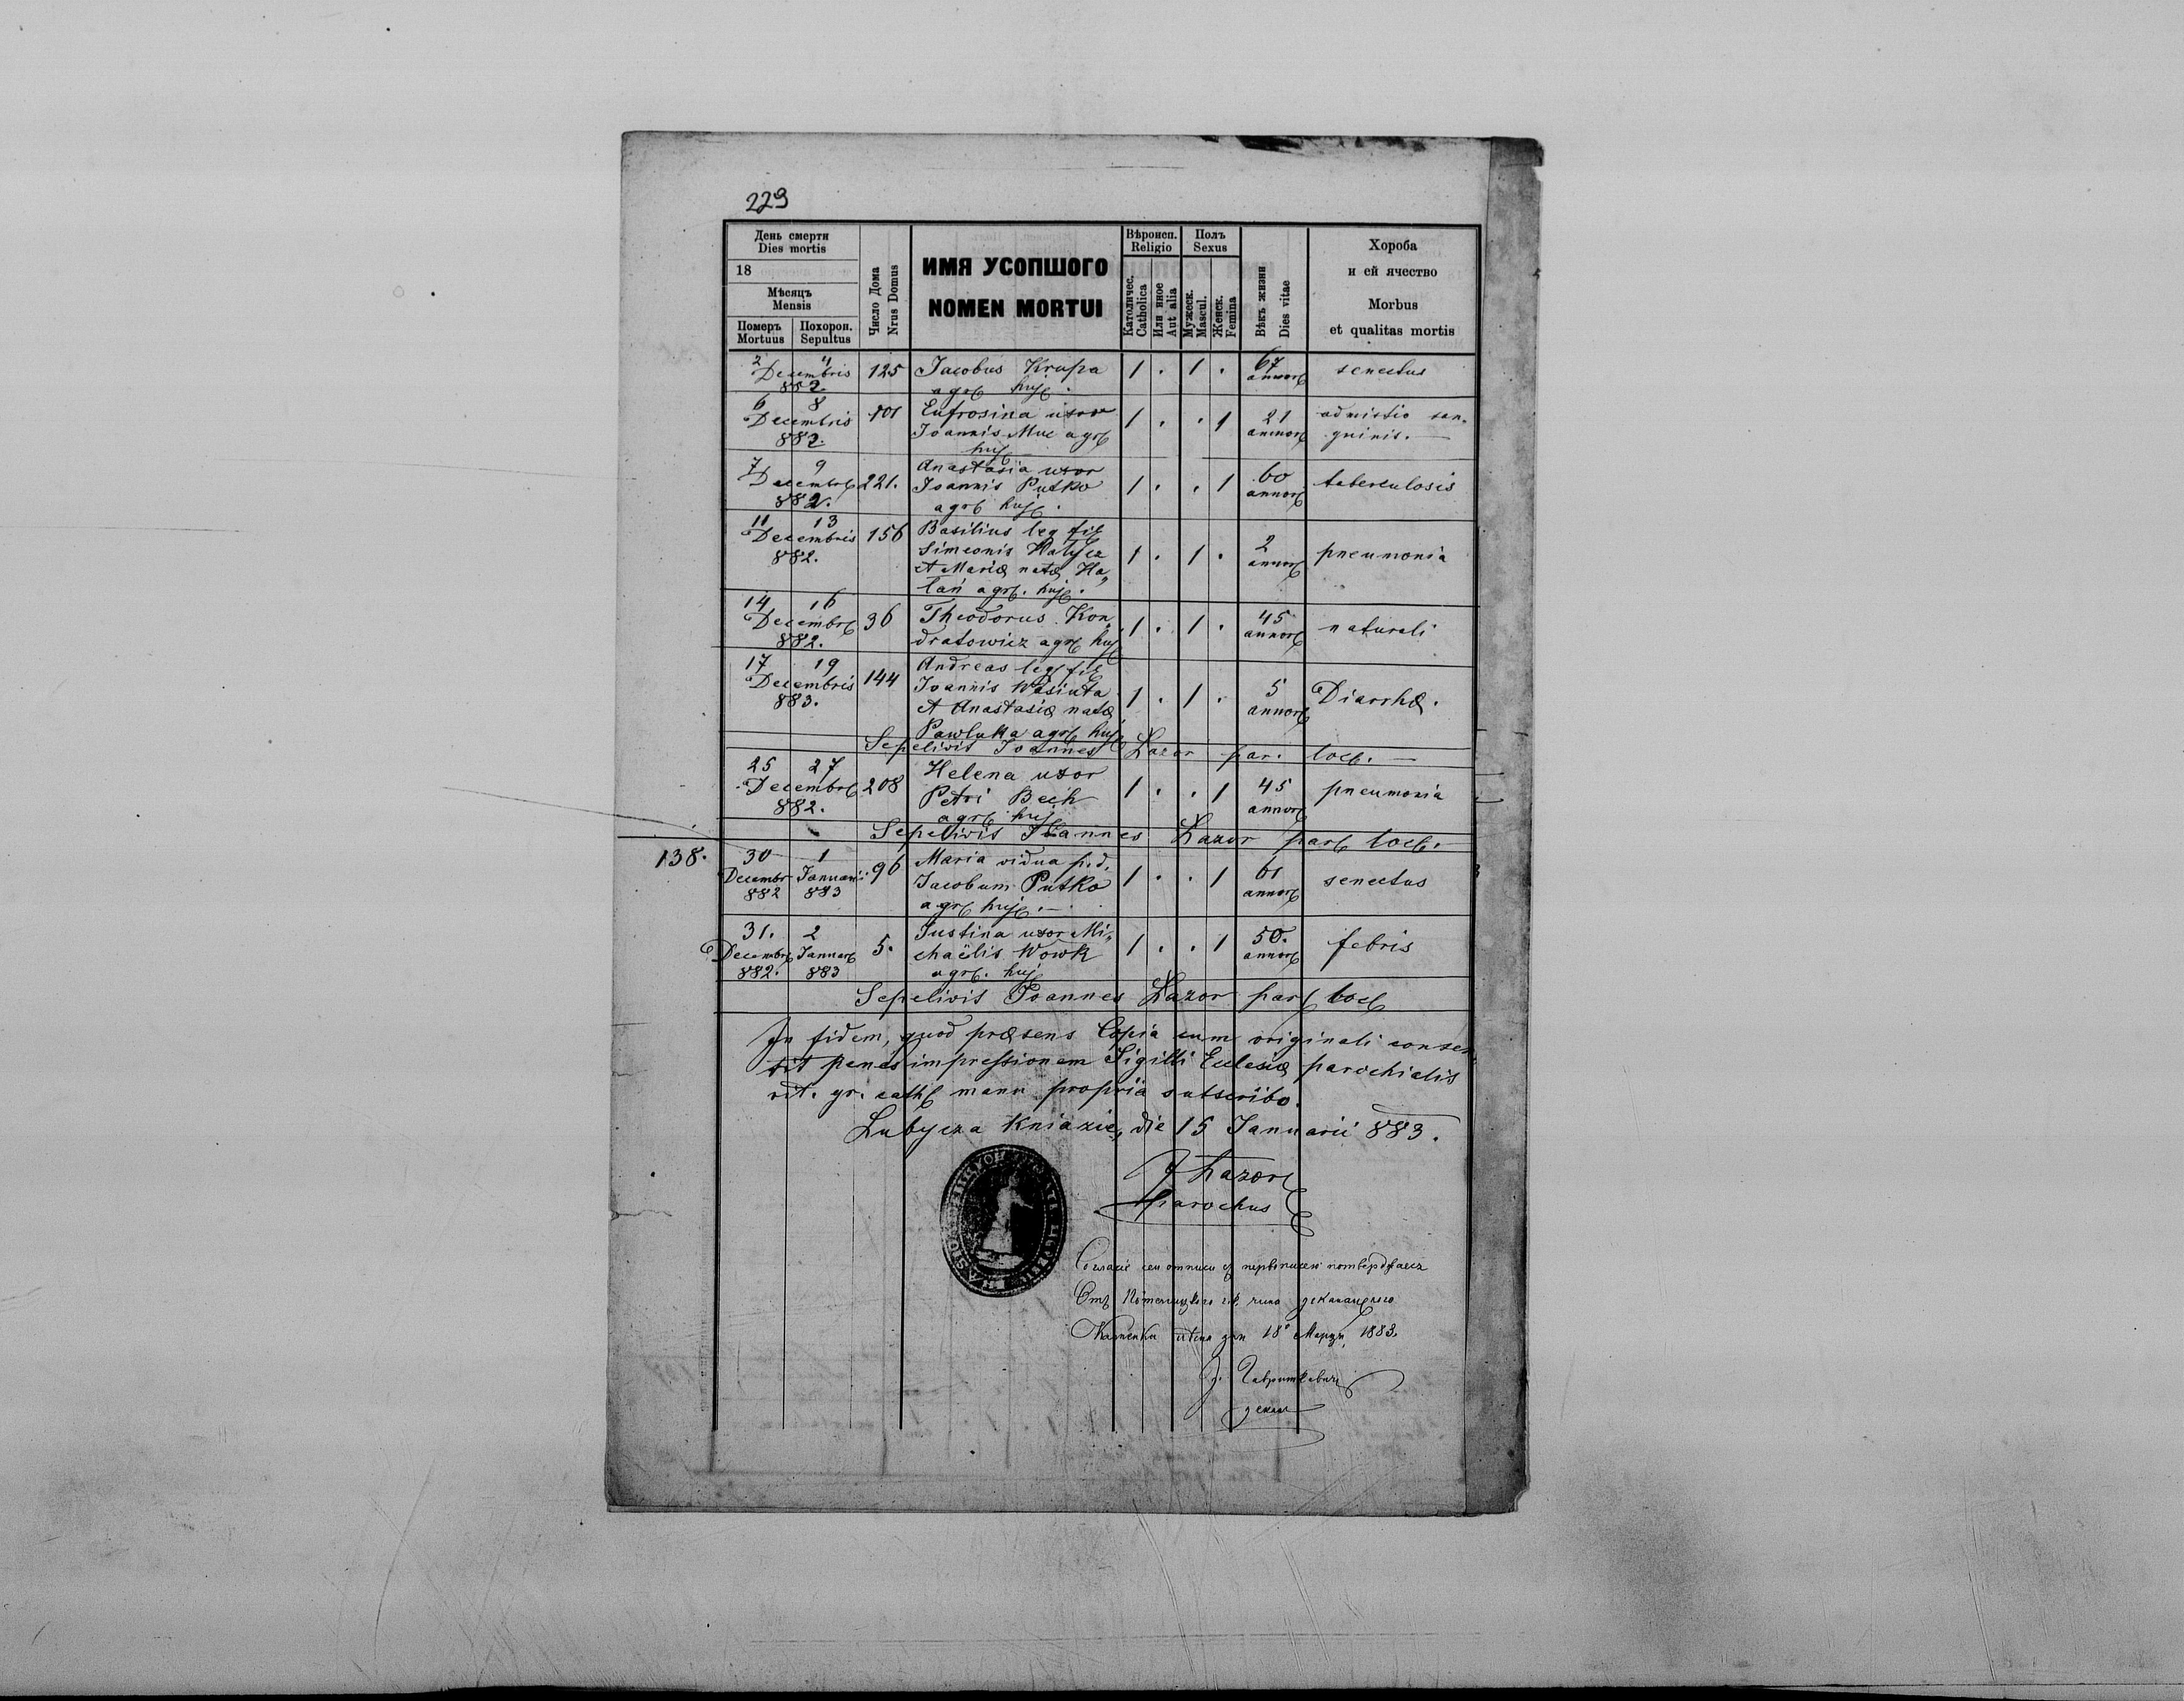 229
День смерти
Dies mortis
18
Мѣсяцъ
Mensis
Померъ Mortuus
Похорон. Sepultus
Число Дома
Nrus Domus
ИМЯ УСОПШОГО
NOMEN MORTUI
Вѣроисп.
Religio
Католичес.
Catholica
Или иное
Aut alia
Полъ
Sexus
Мужеск.
Mascul.
Женск.
Femina
Вѣкъ жизни
Dies vitae
Хороба
и ей ячество
Morbus
et qualitas mortis
2 4 125 Jacobus Krupa 1 . 1 . 67 senectus
Decembris annor
882. agr huj.
6 8 101 Eufrosina uxor 1 . . 1 21 admistio san-
Decembris Joannis Muc agr annor guinis.
882. huj
7 9 Anastasia uxor
Decembr 221. Joannis Putko 1 . . 1 60 tuberculosis
882. agr huj. annor
11 13 156 Basilius leg fil
Decembris Simeonis Hatycz 1 . 1 . 2 pneumonia
882. et Mariæ natæ Ha„ annor
łań agr. huj.
14 16 36 Theodorus Kon„ 1 . 1 . 45 naturali
Decembr dratowicz agr huj annor
882.
17 19 144 Andreas leg fil
Decembris Joannis Wasiuta 1 . 1 . 5 Diarrhæ.
883. et Anastasiæ natæ annor
Pawluka agr huj
Sepelivit Joannes Łazor par. loc.
25 27 208 Helena uxor 1 . . 1 45 pneumonia
Decembr Petri Bech annor
882. agr huj
Sepelivit Joannes Łazor par loc.
138. 30 1 96 Maria vidua p.d. 1 . . 1 61 senectus
Decembr Januarii Jacobum Putko annor
882 883 agr huj.
31. 2 5. Justina uxor Mi„ 1 . . 1 50. febris
Decembr Januar chaëlis Wowk annor
882. 883 agr. huj
Sepelivit Joannes Łazor par loc
In fidem, quod præsens Copia cum originali consen„
tit penes impressionem Sigilli Eclesiæ parochialis
rit. gr. cath manu propria subscribo.
Lubycza Kniazie, die 15 Januarii 883.
J Łazor
parochus
потверджаесъ
Каменки дня 18 Марця 1883.
декан